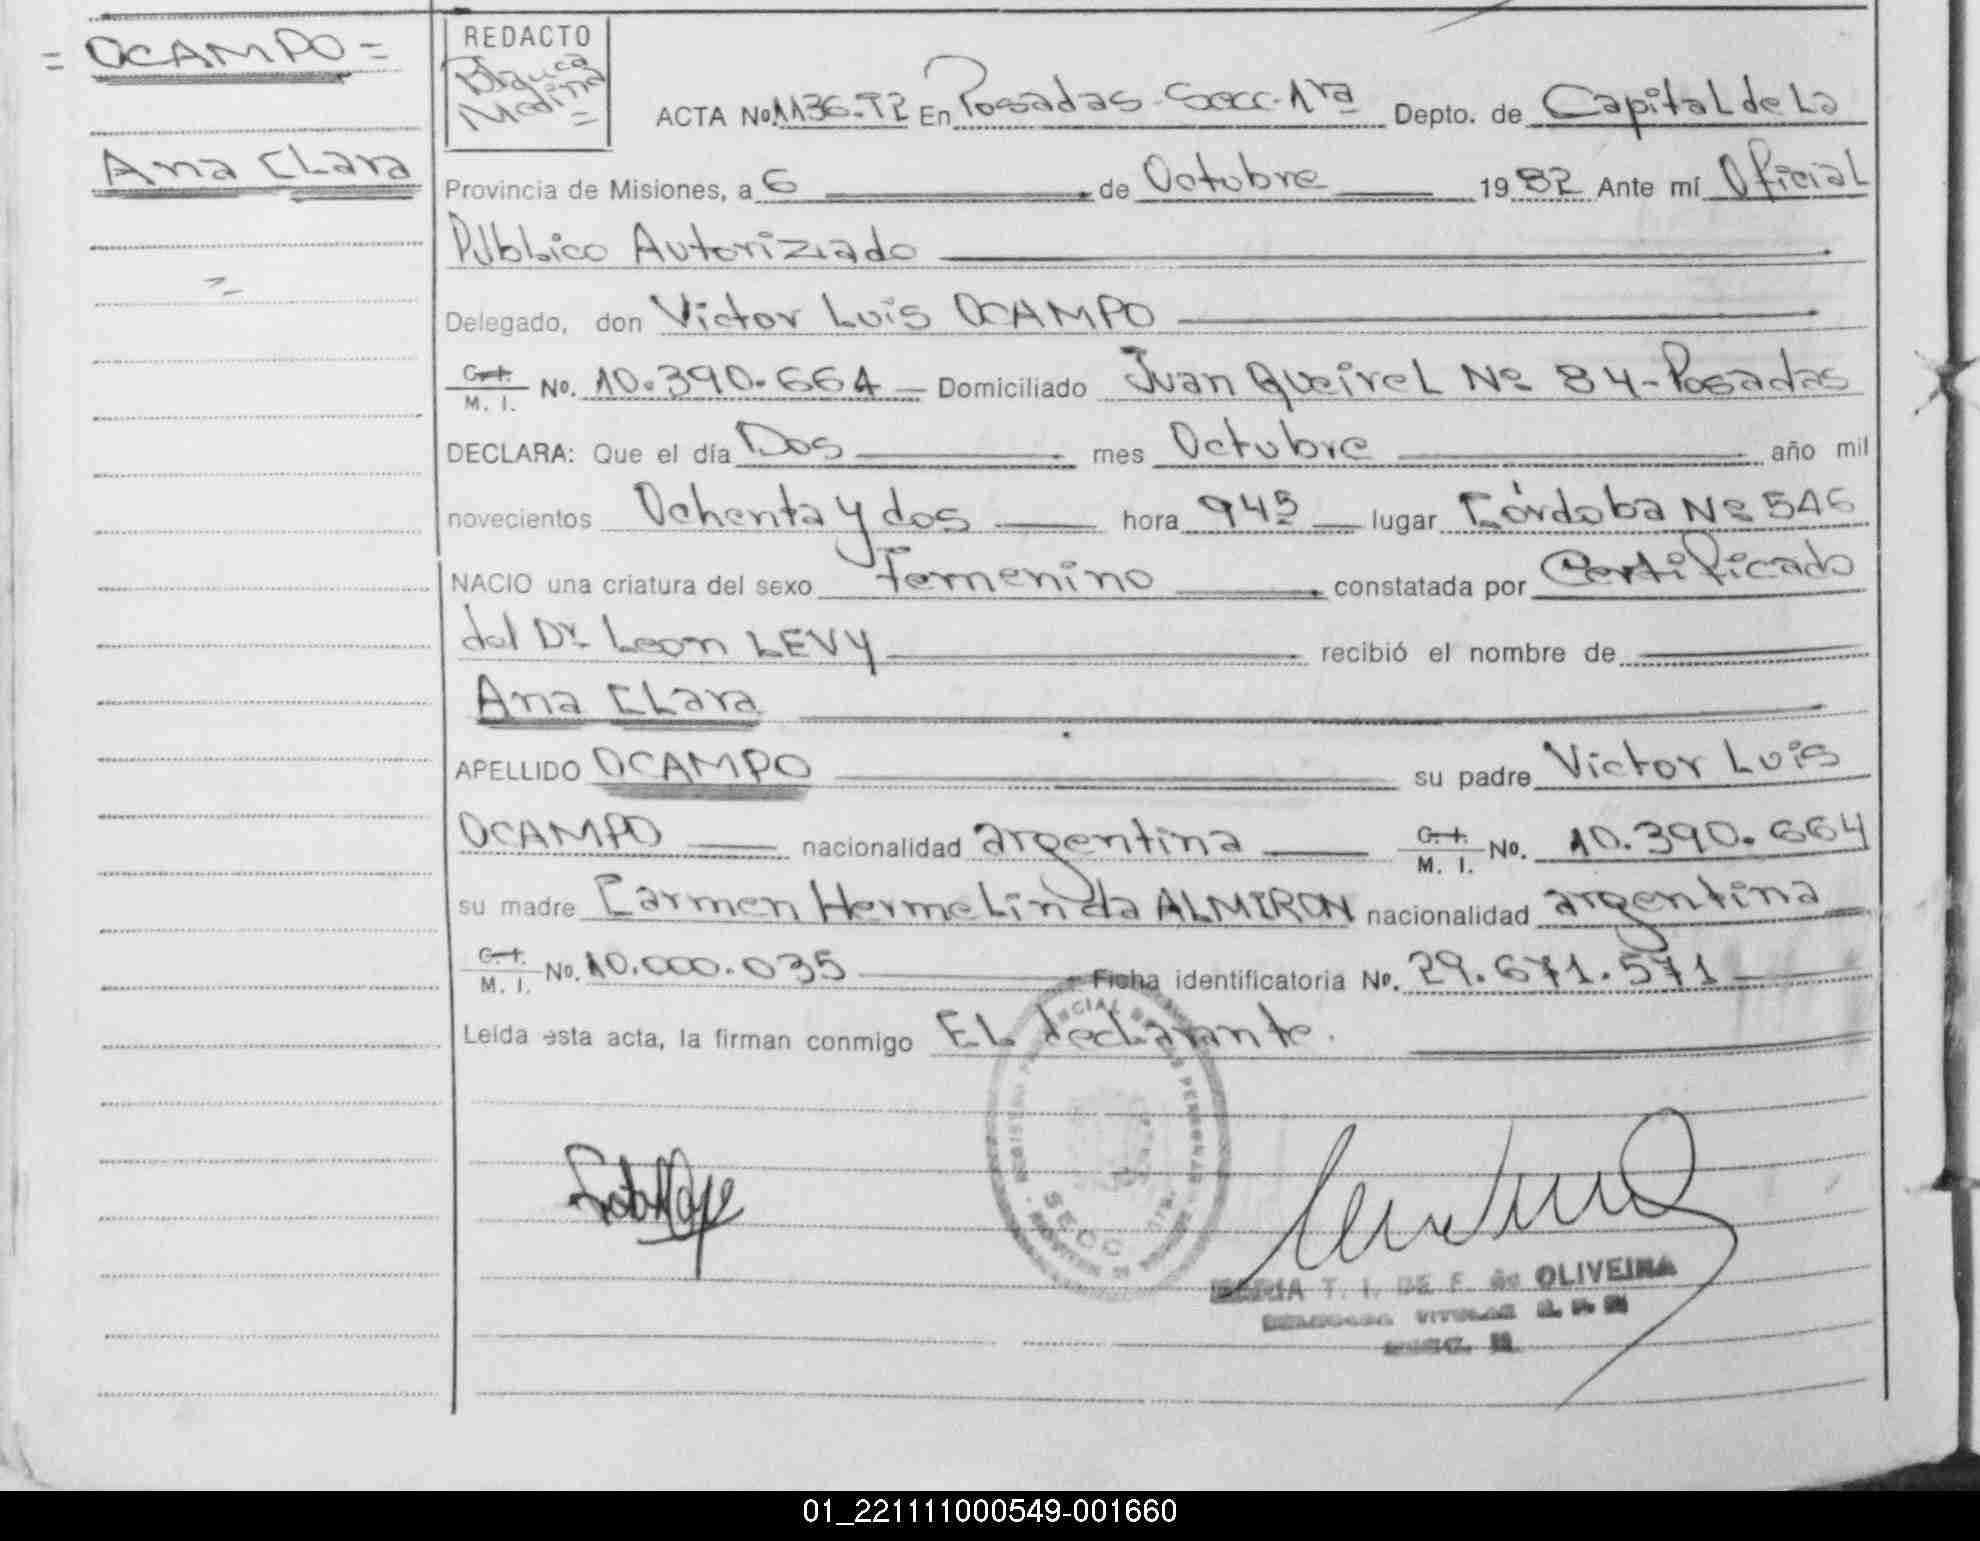 = OCAMPO =
Ana Clara
=
REDACTO
Blanca
Medina
=
ACTA No. 1136-T2 En Posadas-Secc-1ra Depto. de Capital de La
Provincia de Misiones, a 6 de Octubre 1982 Ante mí Oficial
Público Autorizado
Delegado, don Victor Luis OCAMPO
C. I.
M. I. No. 10.390.664 Domiciliado Juan Queirel No 84-Posadas
DECLARA: Que el día Dos mes Octubre año mil
novecientos Ochenta y dos hora 945 lugar Córdoba No 546
NACIO una criatura del sexo Femenino constatada por Certificado
del Dr. Leon LEVY recibió el nombre de
Ana Clara
APELLIDO OCAMPO su padre Victor Luis
OCAMPO nacionalidad argentina C. I.
M. I. No. 10.390.664
su madre Carmen Hermelinda ALMIRON nacionalidad argentina
C. I.
M. I. No. 10.000.035 Ficha identificatoria No. 29.671.571
Leída esta acta, la firman conmigo El declarante.
SECC
MARIA T. I. DE F. de OLIVEIRA
01_221111000549-001660